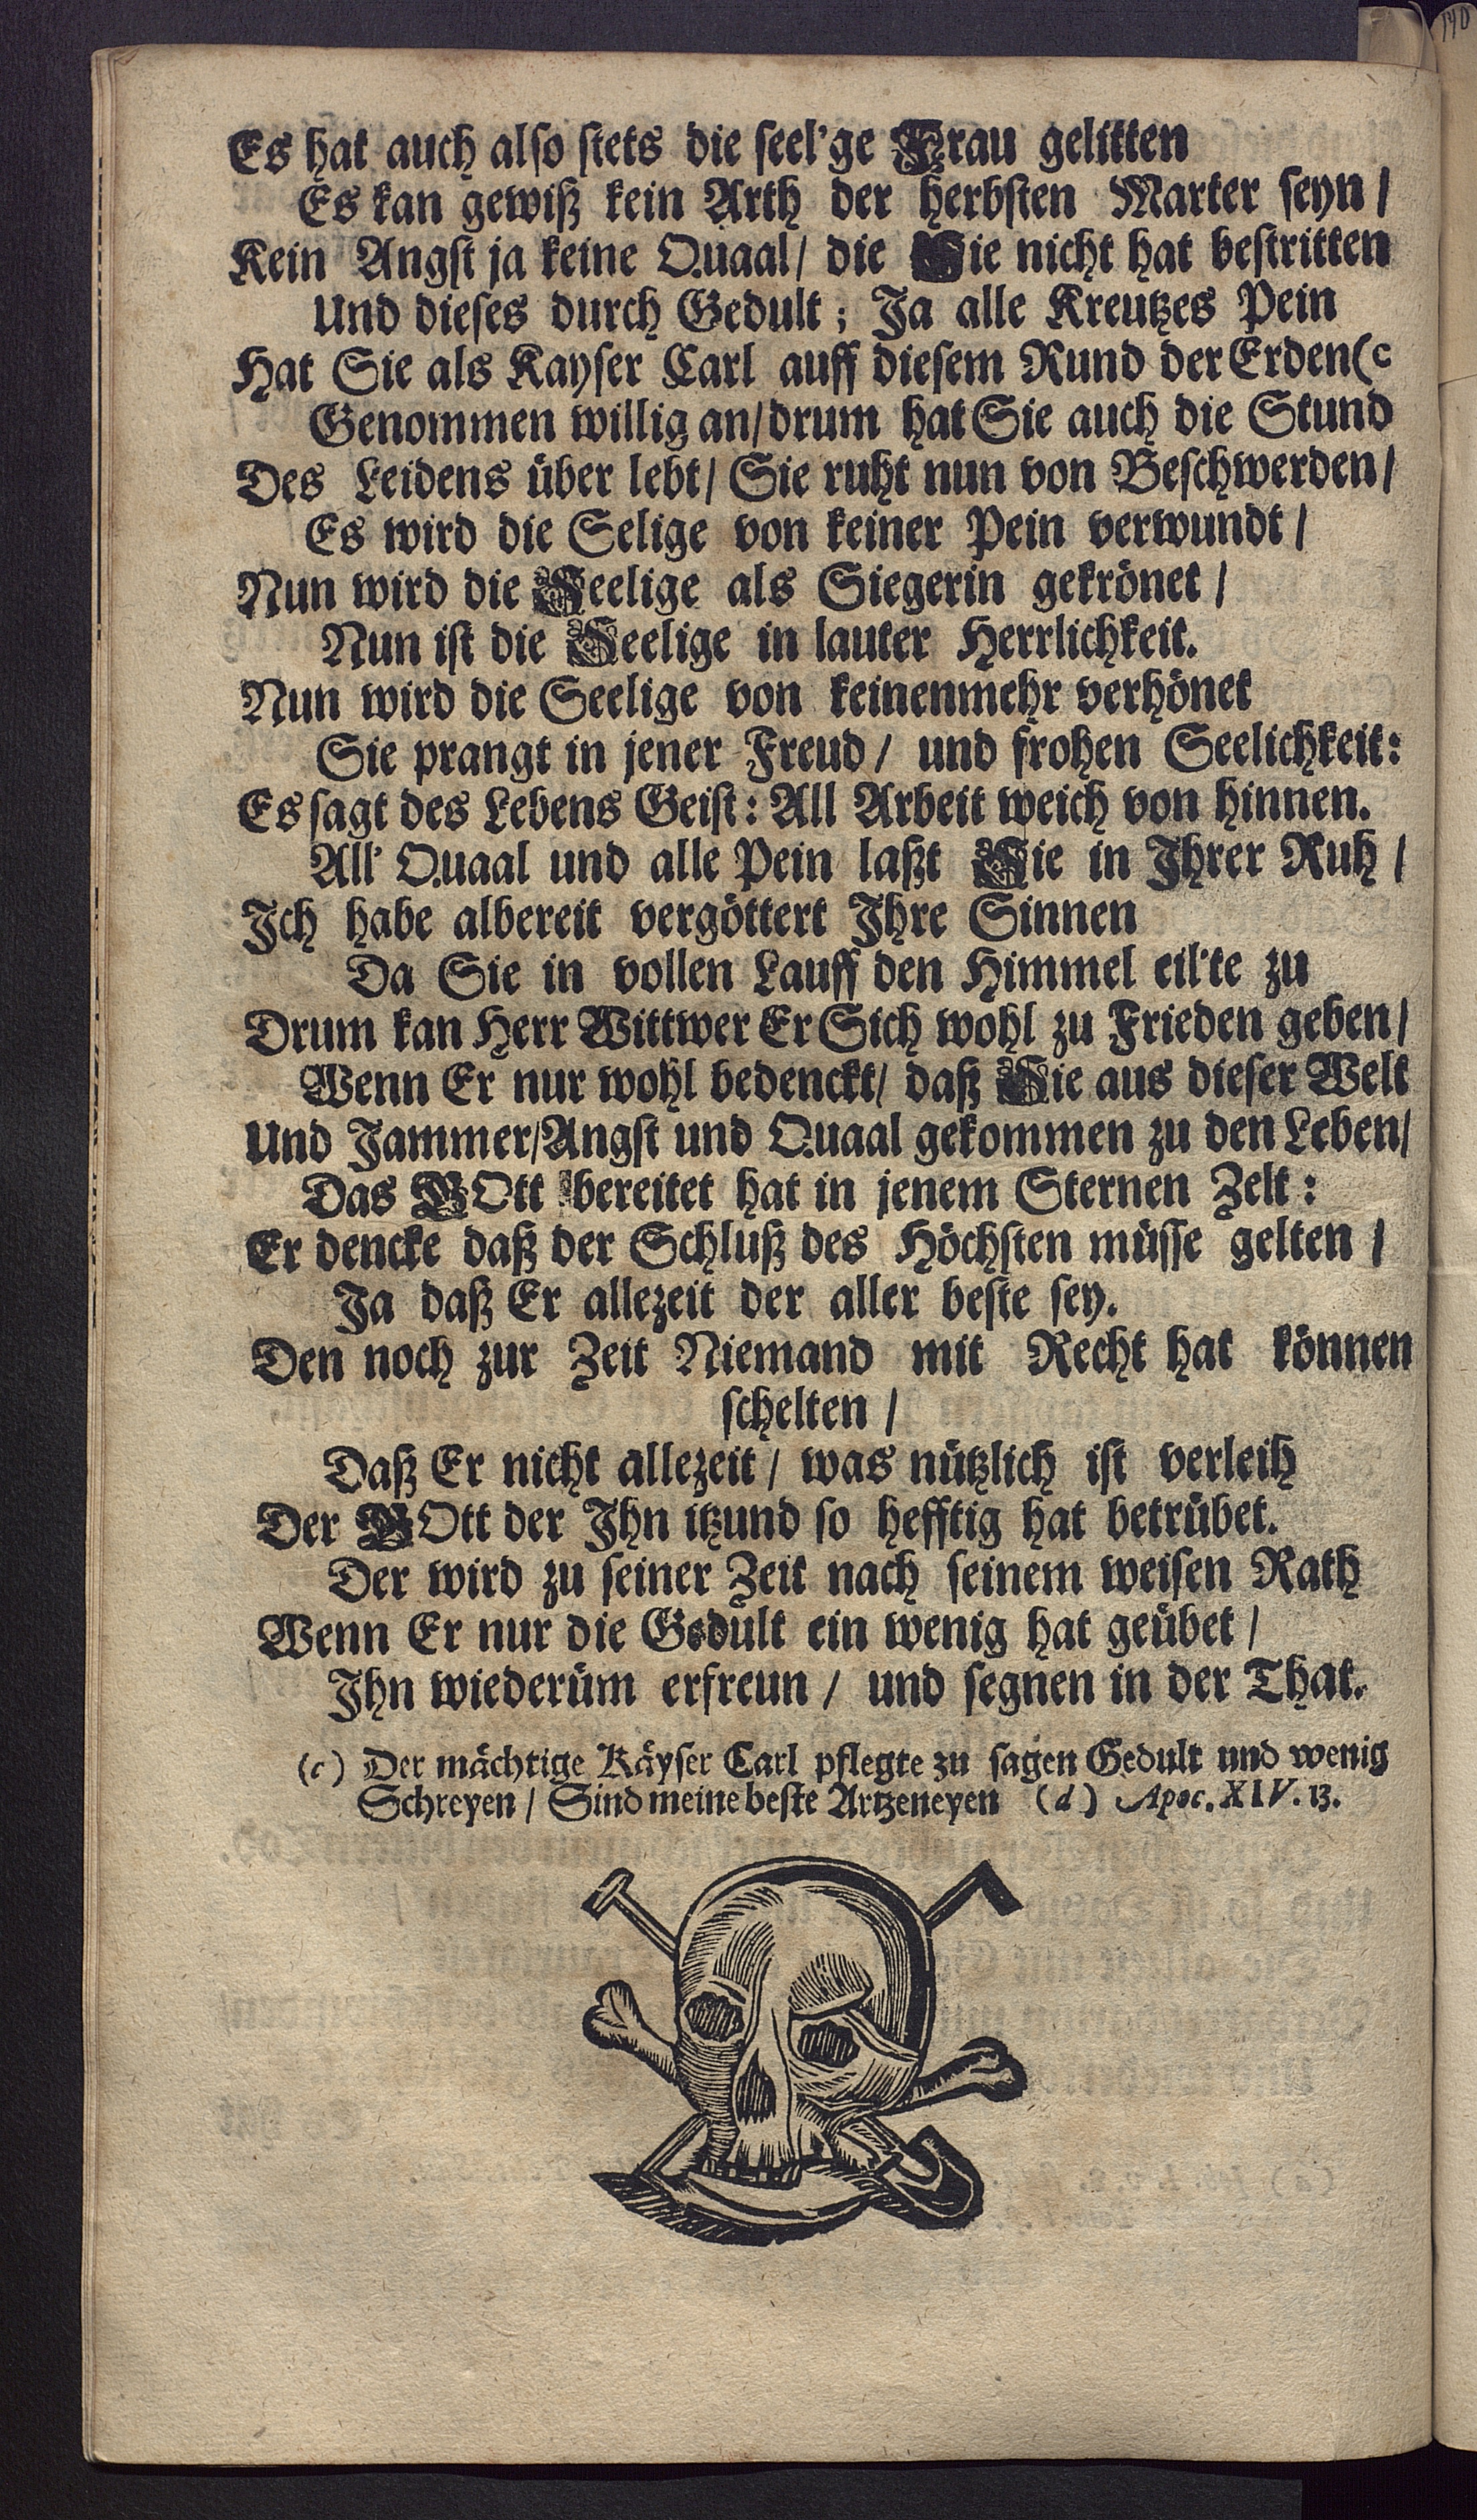 140
Es hat auch also stets die seel'ge Frau gelitten
Es kan gewiß kein Arth der herbsten Marter seyn /
Kein Angst ja keine Quaal / die Sie nicht hat bestritten
Und dieses durch Gedult ; Ja alle Kreutzes Pein
Hat Sie als Kayser Carl auff diesem Rund der Erden (c
Genommen willig an / drum hat Sie auch die Stund
Des Leidens über lebt / Sie ruht nun von Beschwerden /
Es wird die Selige von keiner Pein verwundt /
Nun wird die Seelige als Siegerin gekrönet /
Nun ist die Seelige in lauter Herrlichkeit.
Nun wird die Seelige von keinenmehr verhönet
Sie prangt in jener Freud / und frohen Seelichkeit:
Es sagt des Lebens Geist: All Arbeit weich von hinnen.
All' Quaal und alle Pein laßt Sie in Ihrer Ruh /
Ich habe albereit vergöttert Ihre Sinnen
Da Sie in vollen Lauff den Himmel eil'te zu
Drum kan Herr Wittwer Er Sich wohl zu Frieden geben /
Wenn Er nur wohl bedenckt / daß Sie aus dieser Welt
Und Jammer / Angst und Quaal gekommen zu den Leben /
Das GOtt bereitet hat in jenem Sternen Zelt:
Er dencke daß der Schluß des Höchsten müsse gelten /
Ja daß Er allezeit der aller beste sey.
Den noch zur Zeit Niemand mit Recht hat können
schelten /
Daß Er nicht allezeit / was nützlich ist verleih
Der GOtt der Ihn itzund so hefftig hat betrübet.
Der wird zu seiner Zeit nach seinem weisen Rath
Wenn Er nur die Gedult ein wenig hat geübet /
Ihn wiederüm erfreun / und segnen in der That.
(c) Der mächtige Käyser Carl pflegte zu sagen Gedult und wenig
Schreyen / Sind meine beste Artzeneyen (d) Apoc. XIV. 13.